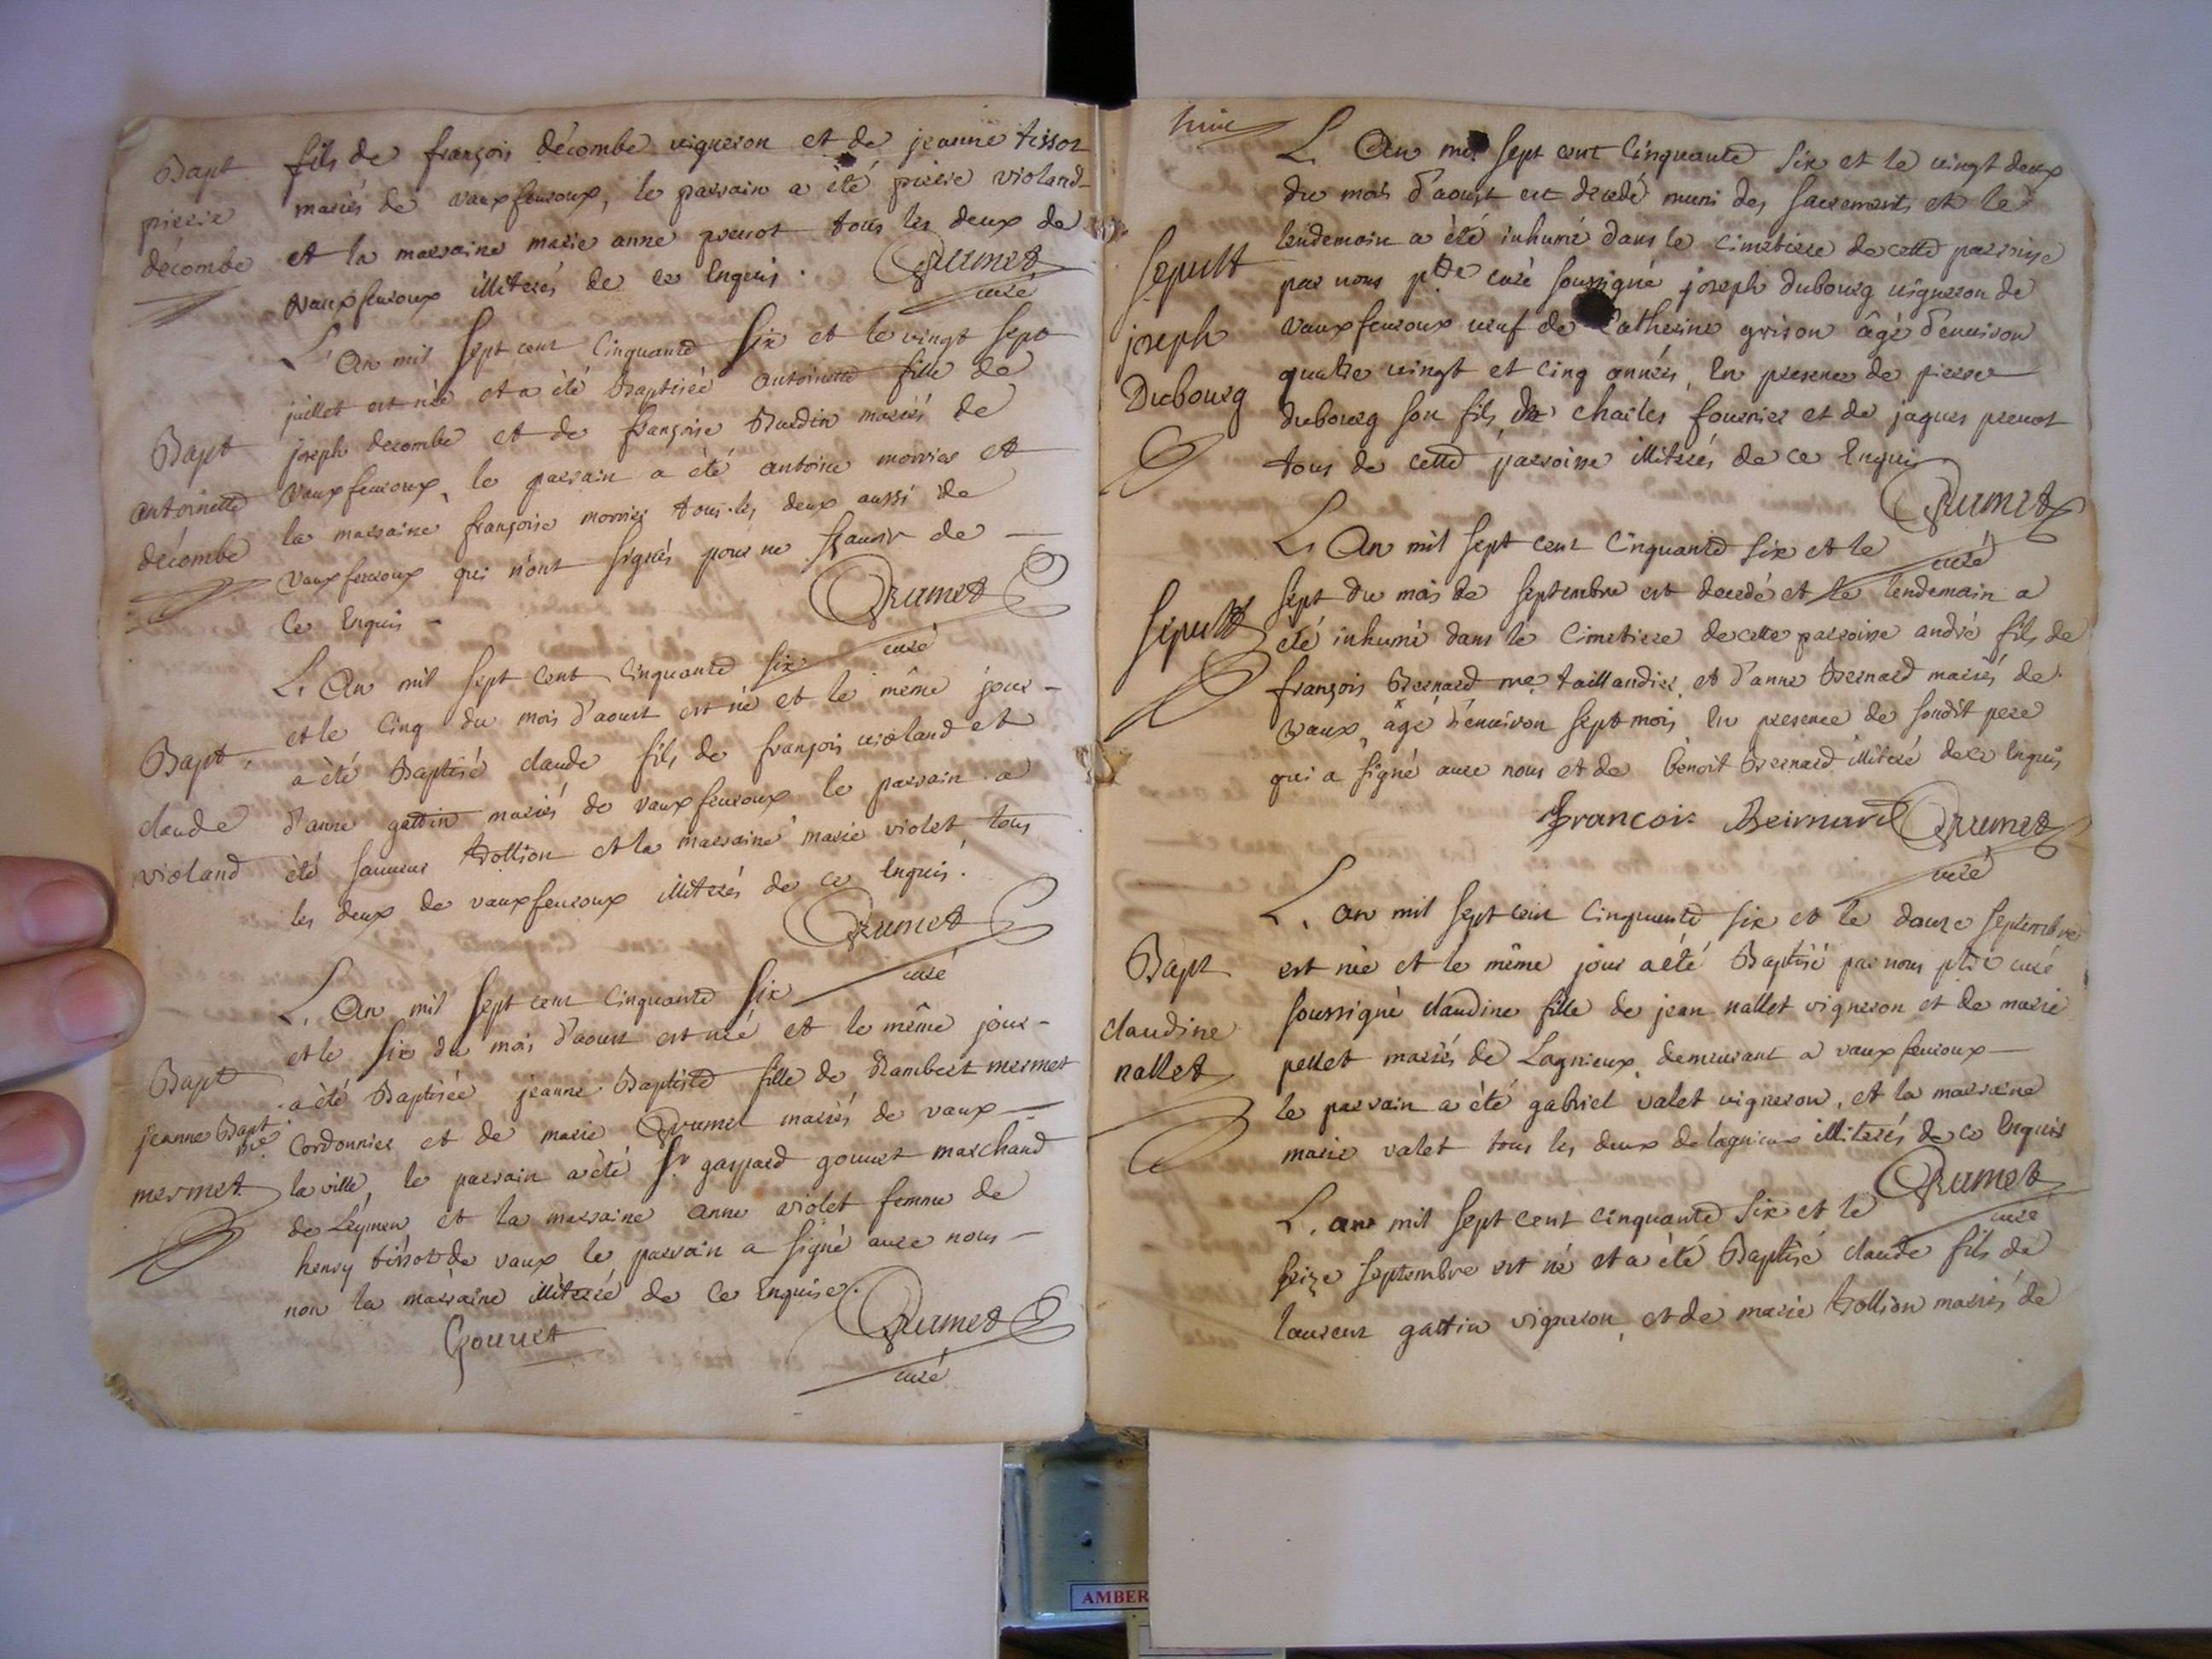 Bapt
pierre
décombe
fils de françois décombe vigneron et de jeanne tissot
mariés de vauxfevroux, le parrain a été pierre violand
et la marraine marie anne prevot tous les deux de
vauxfevroux illiterés de ce enquis.
Brumet
curé
L'An mil sept cent cinquante six et le vingt sept
juillet est née et a été Baptisée antoinette fille de
joseph decombe et de françoise Burdin mariés de
vauxfevroux, le parrain a été antoine morrier et
la marraine françoise morrier tous les deux aussi de
vauxfevroux qui n'ont signés pour ne sçavoir de
ce enquis
Bapt
antoinette
décombe
Brumet
curé
L'An mil sept cent cinquante six
et le cinq du mois d'aoust est né et le même jour
a été Baptisé claude fils de françois violand et
d'anne gattin mariés de vauxfevroux le parrain a
été laurent trollion et la marraine marie violet tous
les deux de vauxfevroux illiterés de ce enquis.
Bapt.
claude
violand
Brumet
curé
L'An mil sept cent cinquante six
et le six du mois d'aoust est née et le même jour
a été Baptisée jeanne Baptiste fille de Rambert mermet
Cordonnier et de marie Brumet mariés de vaux
la ville, le parrain a été Sr gaspard gouvet marchand
de Leymen et la marraine anne violet femme de
henry tissot de vaux le parrain a signé avec nous
non la marraine illiterée de ce enquise.
Bapt
jeanne Bapt
mermet
Gouvet
Brumet
curé
L'An mil sept cent cinquante six et le vingt deux
du mois d'aoust est decedé muni des sacrements et le
lendemain a été inhumé dans le cimetiere de cette parroisse
par nous ptre curé soussigné joseph dubourg vigneron de
vauxfevroux veuf de Catherine grison âgé d'environ
quatre vingt et cinq années, en presence de pierre
dubourg son fils, de charles fournier et de jaques prevot
tous de cette parroisse illiterés de ce enquis
Sepult
joseph
Dubourg
Brumet
curé
L'An mil sept cent cinquante six et le
sept du mois de septembre est decedé et le lendemain a
été inhumé dans le cimetiere de cette parroisse andré fils de
françois Bernard me taillandier, et d'anne Bernard mariés de
vaux, âgé d'environ sept mois en presence de sondit pere
qui a signé avec nous et de benoit Bernard illiteré de ce enquis
Sepult
francois Beirnard
Brumet
curé
L'an mil sept cent cinquante six et le douze septembre
est née et le même jour a été Baptisé par nous ptre curé
soussigné claudine fille de jean nallet vigneron et de marie
pellet mariés de Lagnieux demeurant a vauxfevroux
le parrain a été gabriel valet vigneron, et la marraine
marie valet tous les deux de lagnieux illiterés de ce enquis
Bapt
claudine
nallet
Brumet
curé
L'an mil sept cent cinquante six et le
seize septembre est né et a été Baptisé claude fils de
laurent gattin vigneron, et de marie trollion mariés de
AMBER